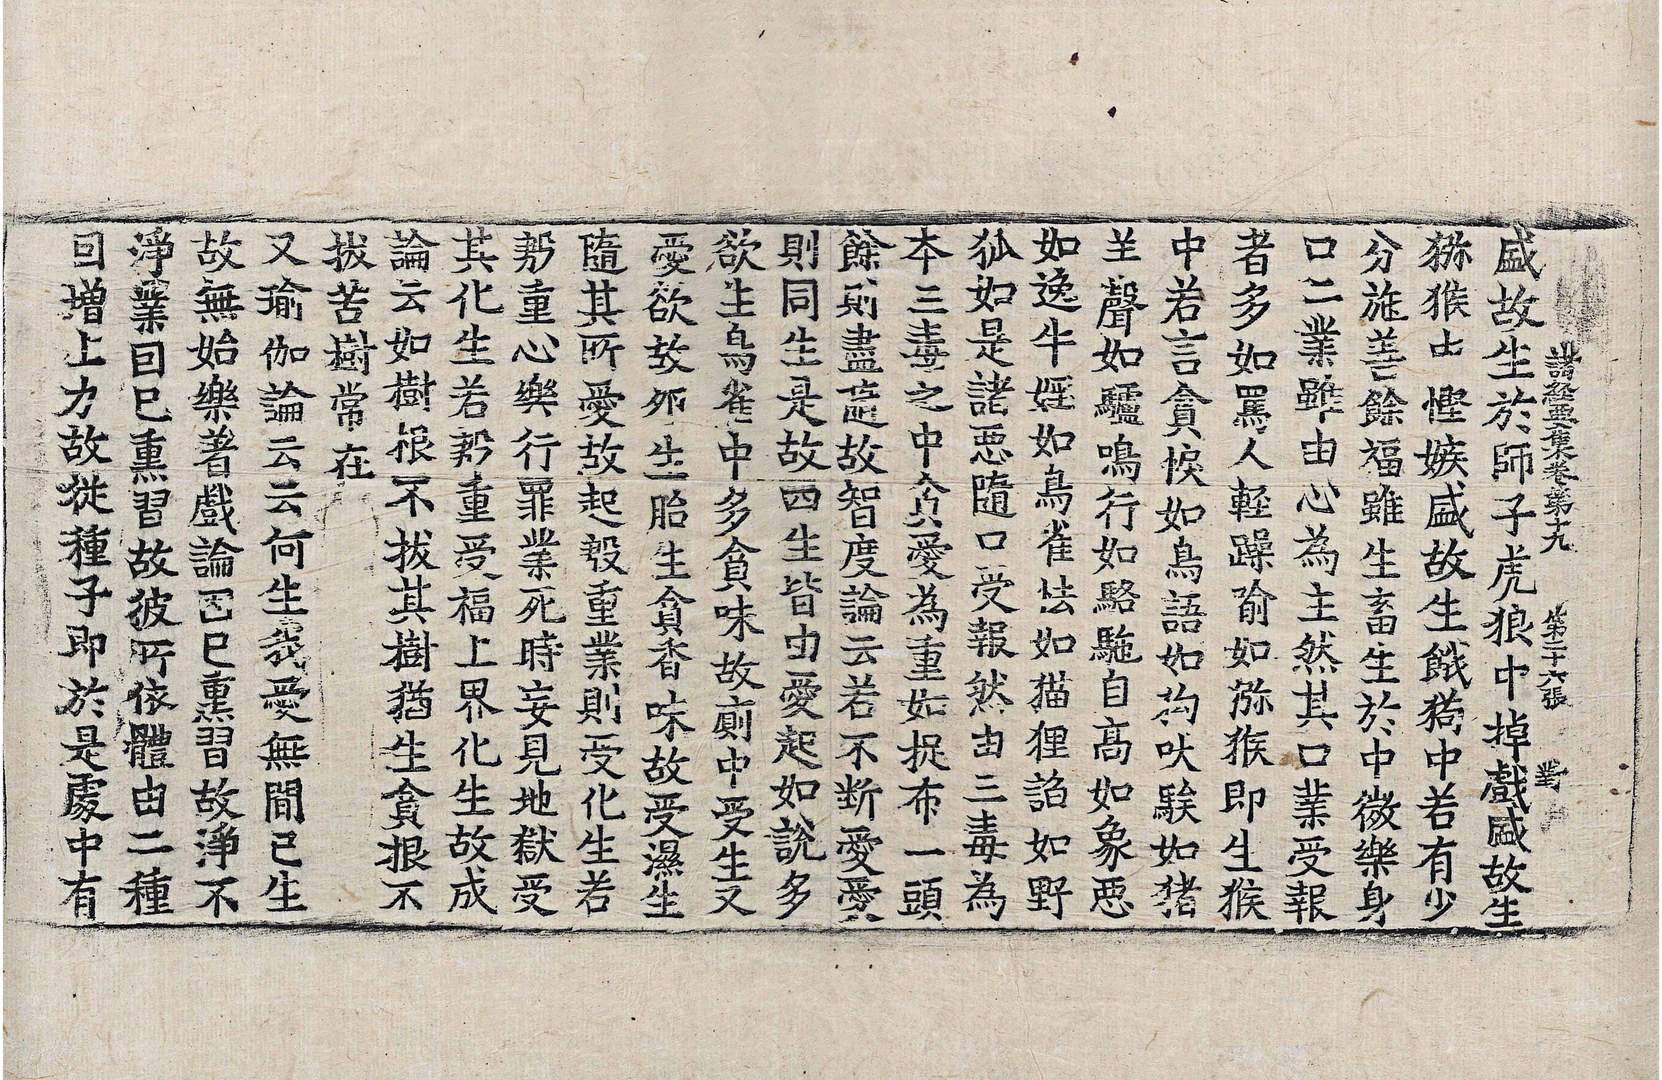 諸經要集卷第十九 第二十六張 對
盛故生於師子虎狼中掉戲盛故生
猕猴中慳嫉盛故生餓狗中若有少
分施善餘福雖生畜生於中微樂身
口二業雖由心為主然其口業受報
者多如罵人輕躁喻如猕猴即生猴
中若言貪悷如鳥語如狗吠騃如猪
羊聲如驢鳴行如駱駞自高如象惡
如逸牛婬如鳥雀怯如猫狸諂如野
狐如是諸惡隨口受報然由三毒為
本三毒之中貪愛為重如捉布一頭
餘則盡隨故智度論云若不断愛愛
則同生是故四生皆由愛起如說多
欲生鳥雀中多貪味故廁中受生又
愛欲故夘生胎生貪香味故受濕生
隨其所愛故起殷重業則受化生若
勢重心樂行罪業死時妄見地獄受
其化生若勢重受福上界化生故成
論云如樹根不拔其樹猶生貪根不
拔苦樹常在
又瑜伽論云云何生我愛無間已生
故無始樂著戲論因已熏習故淨不
淨業因已熏習故彼所依體由二種
因增上力故從種子即於是處中有